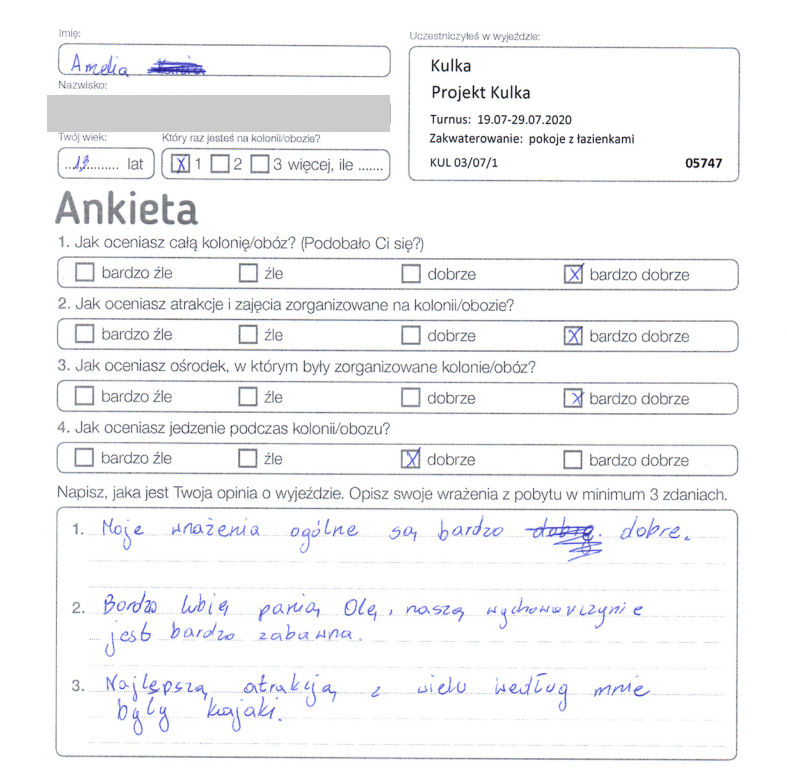 Imię:
Amelia
Nazwisko:
Twój wiek:
13 lat
Który raz jesteś na kolonii/obozie?
X 1 2 3 więcej, ile .......
Uczestniczyłeś w wyjeździe:
Kulka
Projekt Kulka
Turnus: 19.07-29.07.2020
Zakwaterowanie: pokoje z łazienkami
KUL 03/07/1 05747
Ankieta
1. Jak oceniasz całą kolonię/obóz? (Podobało Ci się?)
bardzo źle źle dobrze X bardzo dobrze
2. Jak oceniasz atrakcje i zajęcia zorganizowane na kolonii/obozie?
bardzo źle źle dobrze X bardzo dobrze
3. Jak oceniasz ośrodek, w którym były zorganizowane kolonie/obóz?
bardzo źle źle dobrze X bardzo dobrze
4. Jak oceniasz jedzenie podczas kolonii/obozu?
bardzo źle źle X dobrze bardzo dobrze
Napisz, jaka jest Twoja opinia o wyjeździe. Opisz swoje wrażenia z pobytu w minimum 3 zdaniach.
1. Moje wrażenia ogólne są bardzo dobre.
2. Bardzo lubię panią Olę, naszą wychowawczynie
jest bardzo zabawna.
3. Najlepszą atrakcją z wielu według mnie
były kajaki.